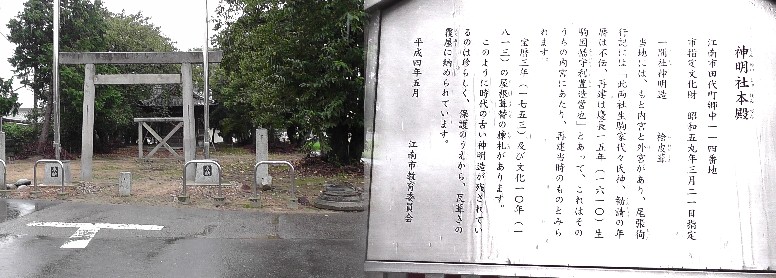 神明社本殿
しんめいしゃほんでん
江南市田代町郷中一一四番地
市指定文化財 昭和五九年三月二一日指定
一間社神明造 桧皮葺
当地には、もと内宮と外宮があり、尾張徇
行記には「此両社生駒家代々氏神、勧請の年
暦は不伝、再建は慶長一五年(一六一〇)生
駒因幡守利豊造営也」とあって、これはその
うちの内宮にあたり、再建当時のものとみら
れます。
宝暦三年(一七五三)及び文化一〇年(一
八一三)の屋根葺替の棟札があります。
このように時代の古い神明造が残されてい
るのは珍らしく、保護のうえから、瓦葺きの
覆屋に納められています。
平成四年五月
江南市教育委員会